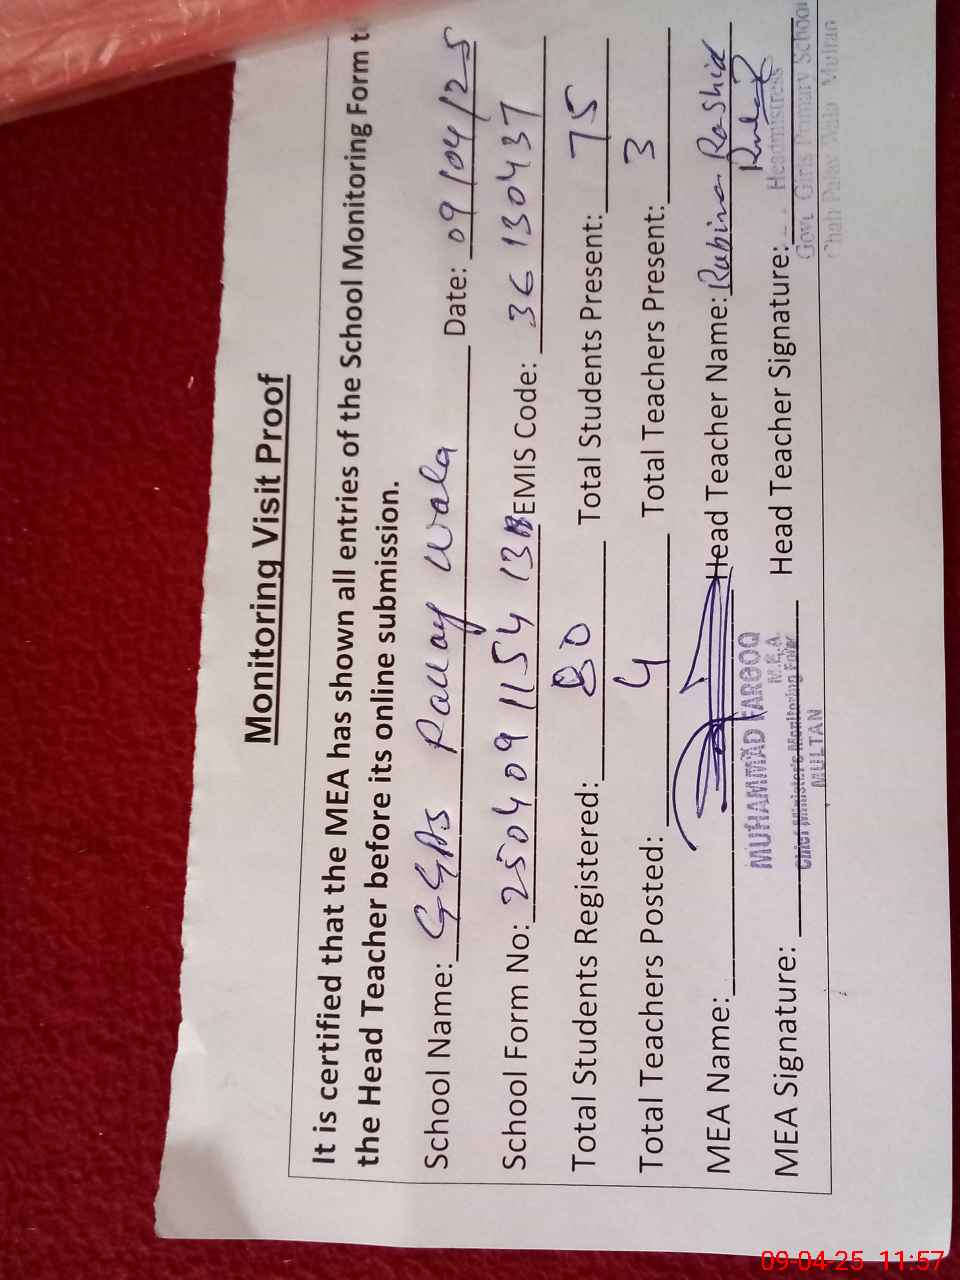 Monitoring Visit Proof
It is certified that the MEA has shown all entries of the School Monitoring Form t
the Head Teacher before its online submission.
School Name: GGPS Pallay Wala Date: 09/04/25
School Form No: 250409 1154 13B EMIS Code: 36130437
Total Students Registered: 80 Total Students Present: 75
Total Teachers Posted: 4 Total Teachers Present: 3
MEA Name: Head Teacher Name: Rubina Rashid
MUHAMMAD FAROOQ
M.E.A.
Chief Minister's Monitoring Force
MULTAN
MEA Signature: Head Teacher Signature:
Headmistress
Govt. Girls Primary School
Chah Palay Wala Multan
09-04-25 11:57